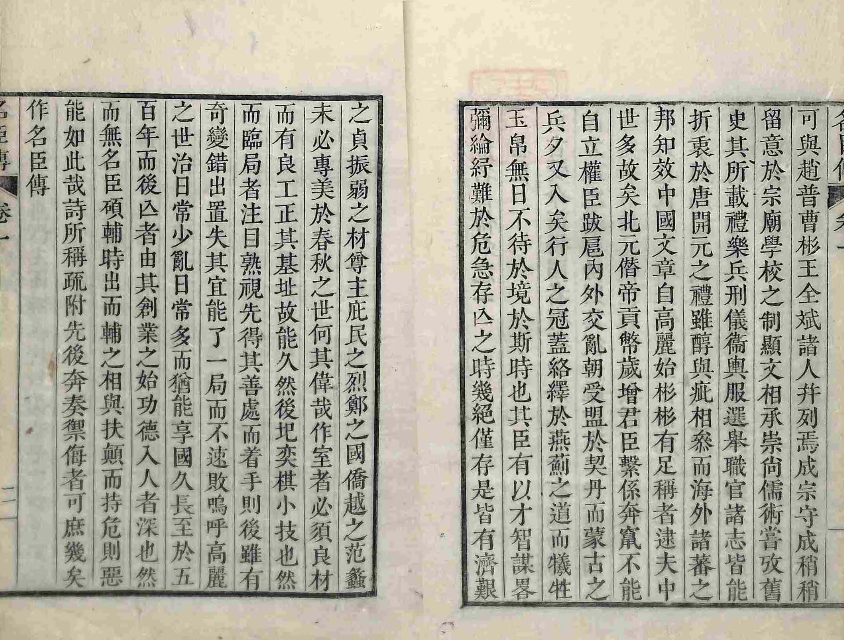 名臣傳 卷一
可與趙普曹彬王全斌諸人幷列焉成宗守成稍稍
留意於宗廟學校之制顯文相承崇尙儒術嘗攷舊
史其所載禮樂兵刑儀衞輿服選舉職官諸志皆能
折衷於唐開元之禮雖醇與疵相叅而海外諸蕃之
邦知效中國文章自高麗始彬彬有足稱者逮夫中
世多故矣北元僭帝貢幣歲增君臣繫係奔竄不能
自立權臣跋扈內外交亂朝受盟於契丹而蒙古之
兵夕又入矣行人之冠蓋絡繹於燕薊之道而犧牲
玉帛無日不待於境於斯時也其臣有以才智謀畧
彌綸紓難於危急存亾之時幾絕僅存是皆有濟艱
之貞振弱之材尊主庇民之烈鄭之國僑越之范蠡
未必專美於春秋之世何其偉哉作室者必須良材
而有良工正其基址故能久然後圯奕棋小技也然
而臨局者注目熟視先得其善處而着手則後雖有
奇變錯出置失其宜能了一局而不速敗嗚呼高麗
之世治日常少亂日常多而猶能享國久長至於五
百年而後亾者由其創業之始功德入人者深也然
而無名臣碩輔時出而輔之相與扶顛而持危則惡
能如此哉詩所稱疏附先後奔奏禦侮者可庶幾矣
作名臣傳
名臣傳 卷一 二